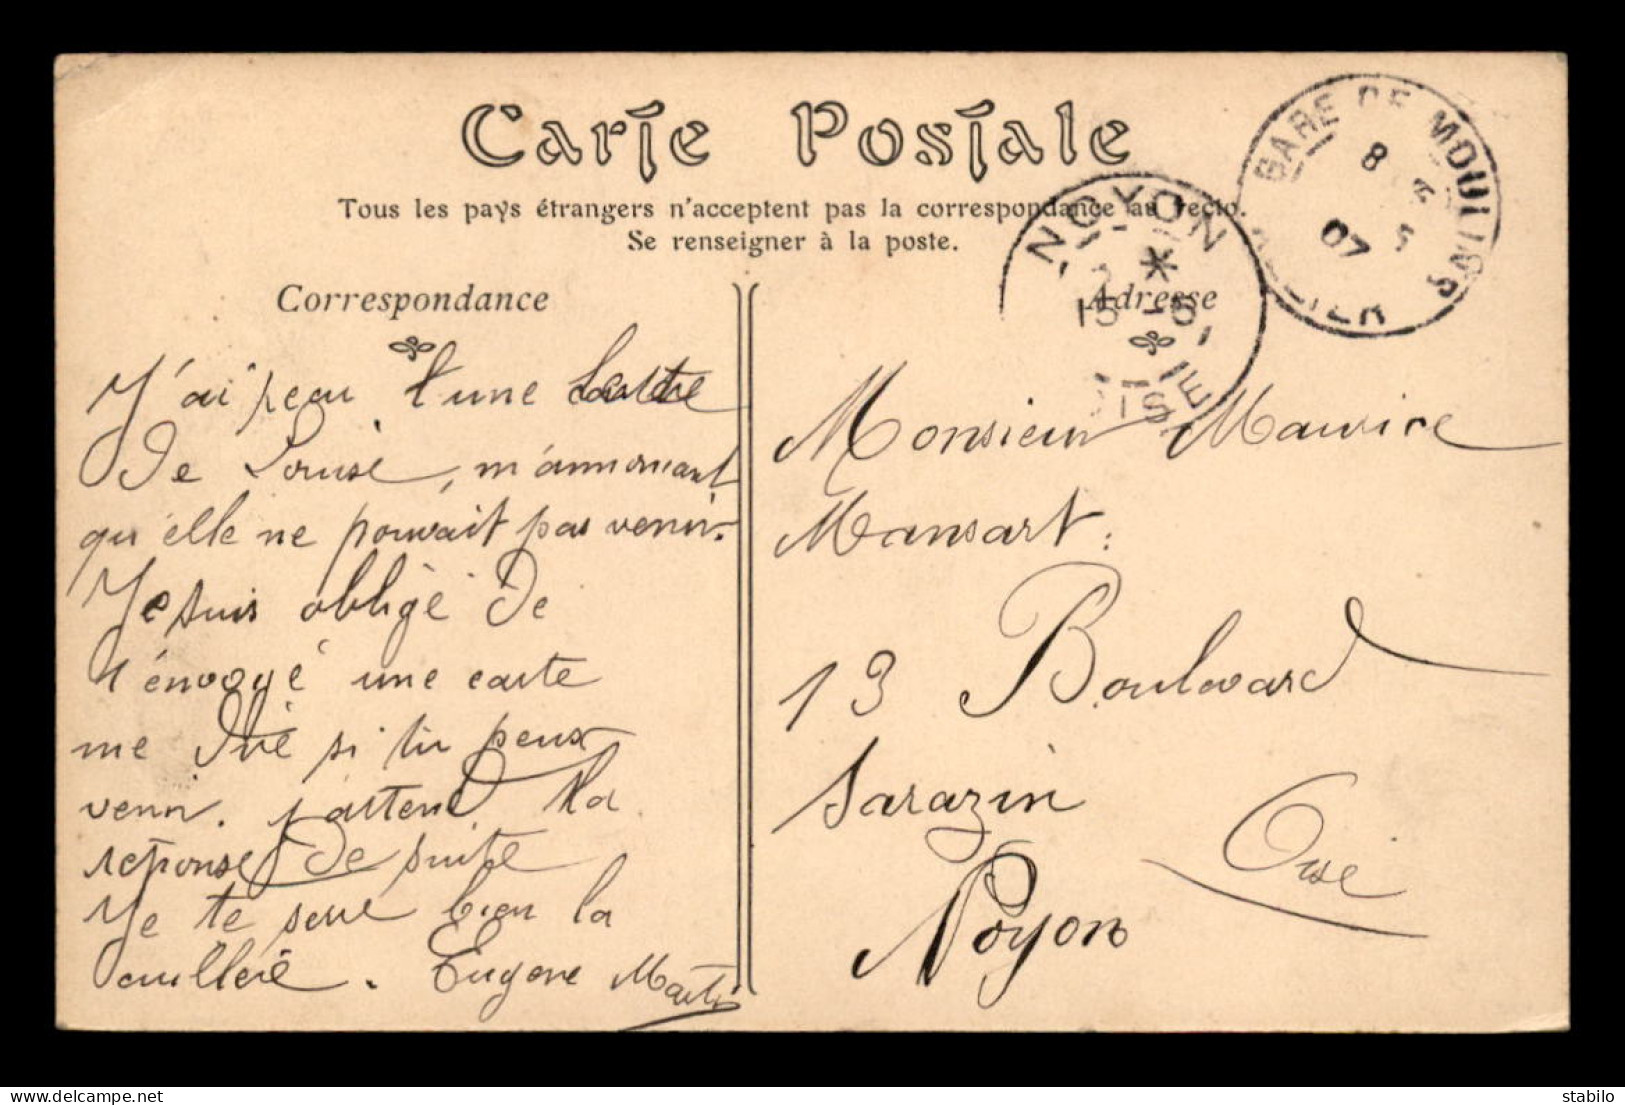 Carte Postale
Tous les pays étrangers n'acceptent pas la correspondance au recto.
Se renseigner à la poste.
Correspondance
Adresse
GARE DE MOULINS
8
07
ALLIER
NOYON
15 - 5
OISE
J'ai peau l'une
De Louise, m'annonçant
qu'elle ne pouvait pas venir.
Je suis obligé De
t'énvoyé une carte
me Dire si tu peux
venir. j'attend ta
reponse De suite
Je te serre bien la
cuillère. Eugene Martin
Monsieur Maurice
Mansart.
13 Boulevard
Sarazin
Noyon
Oise
delcampe.net
stabilo